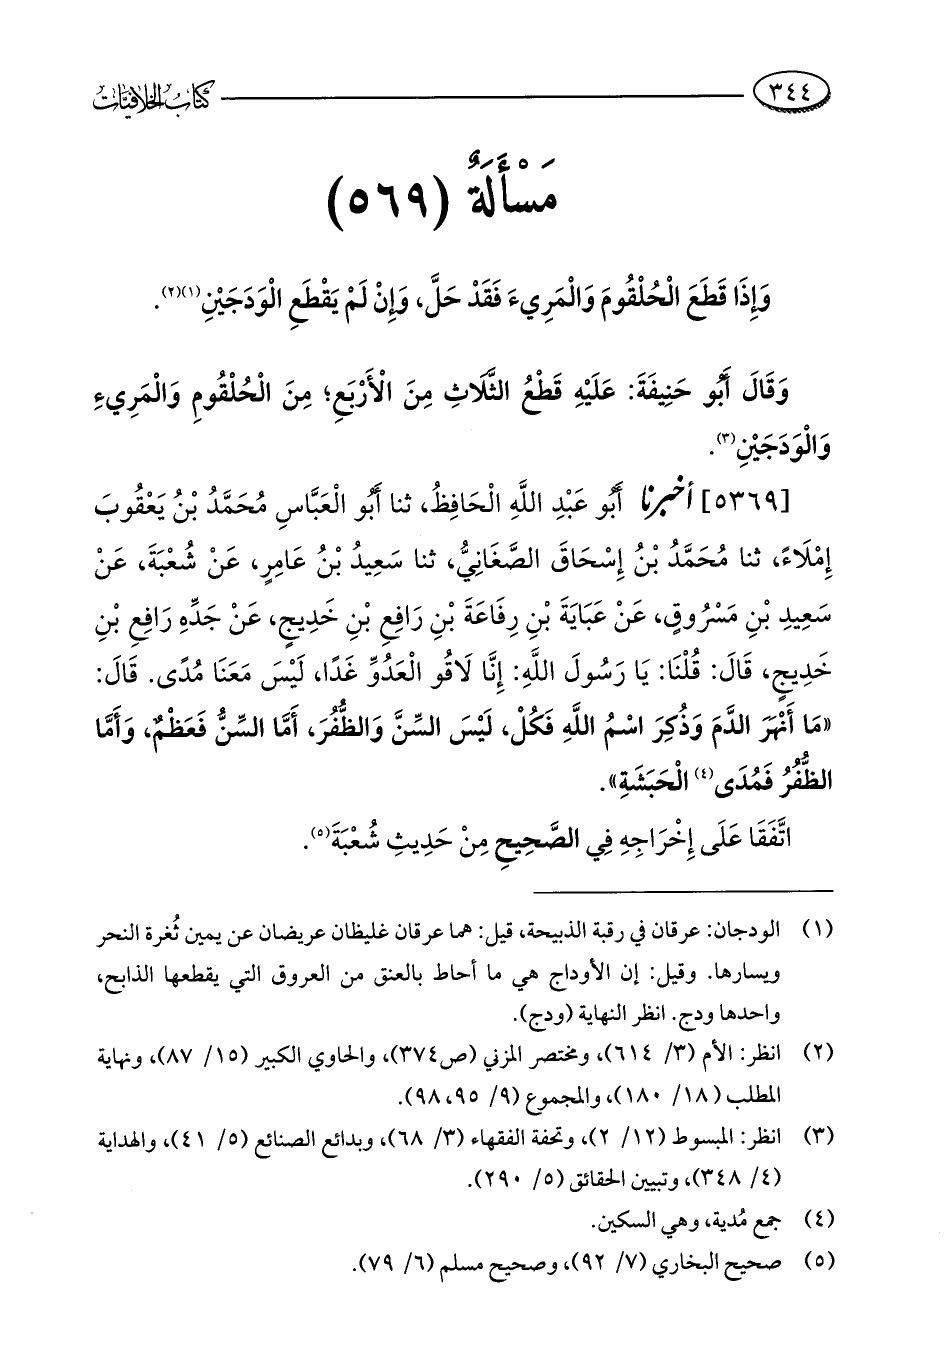 ٣٤٤
كتاب الخلافيات
مَسْأَلَةٌ (٥٦٩)
وَإِذَا قَطَعَ الْحُلْقُومَ وَالْمَرِيءَ فَقَدْ حَلَّ، وَإِنْ لَمْ يَقْطَعِ الْوَدَجَيْنِ(١)(٢).
وَقَالَ أَبُو حَنِيفَةَ: عَلَيْهِ قَطْعُ الثَّلَاثِ مِنَ الْأَرْبَعِ؛ مِنَ الْحُلْقُومِ وَالْمَرِيءِ
وَالْوَدَجَيْنِ(٣).
[٥٣٦٩] أخبرنا أَبُو عَبْدِ اللَّهِ الْحَافِظُ، ثنا أَبُو الْعَبَّاسِ مُحَمَّدُ بْنُ يَعْقُوبَ
إِمْلَاءً، ثنا مُحَمَّدُ بْنُ إِسْحَاقَ الصَّغَانِيُّ، ثنا سَعِيدُ بْنُ عَامِرٍ، عَنْ شُعْبَةَ، عَنْ
سَعِيدِ بْنِ مَسْرُوقٍ، عَنْ عَبَايَةَ بْنِ رِفَاعَةَ بْنِ رَافِعِ بْنِ خَدِيجٍ، عَنْ جَدِّهِ رَافِعِ بْنِ
خَدِيجٍ، قَالَ: قُلْنَا: يَا رَسُولَ اللَّهِ: إِنَّا لَاقُو الْعَدُوِّ غَدًا، لَيْسَ مَعَنَا مُدًى. قَالَ:
«مَا أَنْهَرَ الدَّمَ وَذُكِرَ اسْمُ اللَّهِ فَكُلْ، لَيْسَ السِّنَّ وَالظُّفُرَ، أَمَّا السِّنُّ فَعَظْمٌ، وَأَمَّا
الظُّفُرُ فَمُدَى(٤) الْحَبَشَةِ».
اتَّفَقَا عَلَى إِخْرَاجِهِ فِي الصَّحِيحِ مِنْ حَدِيثِ شُعْبَةَ(٥).
(١) الودجان: عرقان في رقبة الذبيحة، قيل: هما عرقان غليظان عريضان عن يمين ثُغرة النحر
ويسارها. وقيل: إن الأوداج هي ما أحاط بالعنق من العروق التي يقطعها الذابح،
واحدها ودج. انظر النهاية (ودج).
(٢) انظر: الأم (٣/ ٦١٤)، ومختصر المزني (ص٣٧٤)، والحاوي الكبير (١٥/ ٨٧)، ونهاية
المطلب (١٨/ ١٨٠)، والمجموع (٩/ ٩٥، ٩٨).
(٣) انظر: المبسوط (١٢/ ٢)، وتحفة الفقهاء (٣/ ٦٨)، وبدائع الصنائع (٥/ ٤١)، والهداية
(٤/ ٣٤٨)، وتبيين الحقائق (٥/ ٢٩٠).
(٤) جمع مُدية، وهي السكين.
(٥) صحيح البخاري (٧/ ٩٢)، وصحيح مسلم (٦/ ٧٩).